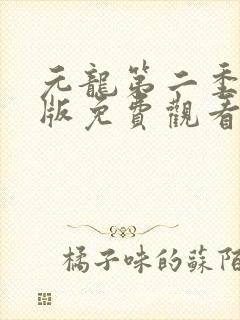 元龍第二季
版免費觀看
橘子味的蘇陌